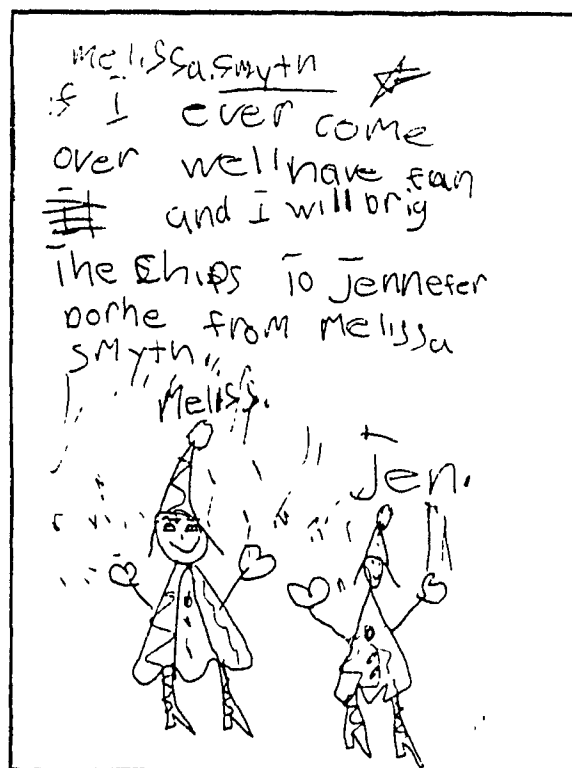 melissa.smytn
if I ever come
over well have fun
and I will brig
The Chips To Jennefer
from Melissa
smytn.
Meliss.
Jen.